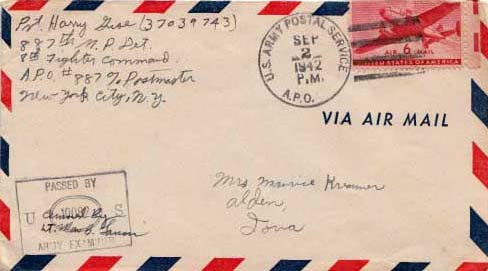 Pvt. Harry Guse (37039743)
887th M.P. Det.
8th Fighter Command
A.P.O. #887 % Postmaster
New York City, N.Y.
U.S. ARMY POSTAL SERVICE
SEP
2
1942
P.M.
A.P.O.
6¢
AIR MAIL
UNITED STATES OF AMERICA
VIA AIR MAIL
Mrs Kramer
Alden,
Iowa
PASSED BY
U S
ARMY EXAMINER